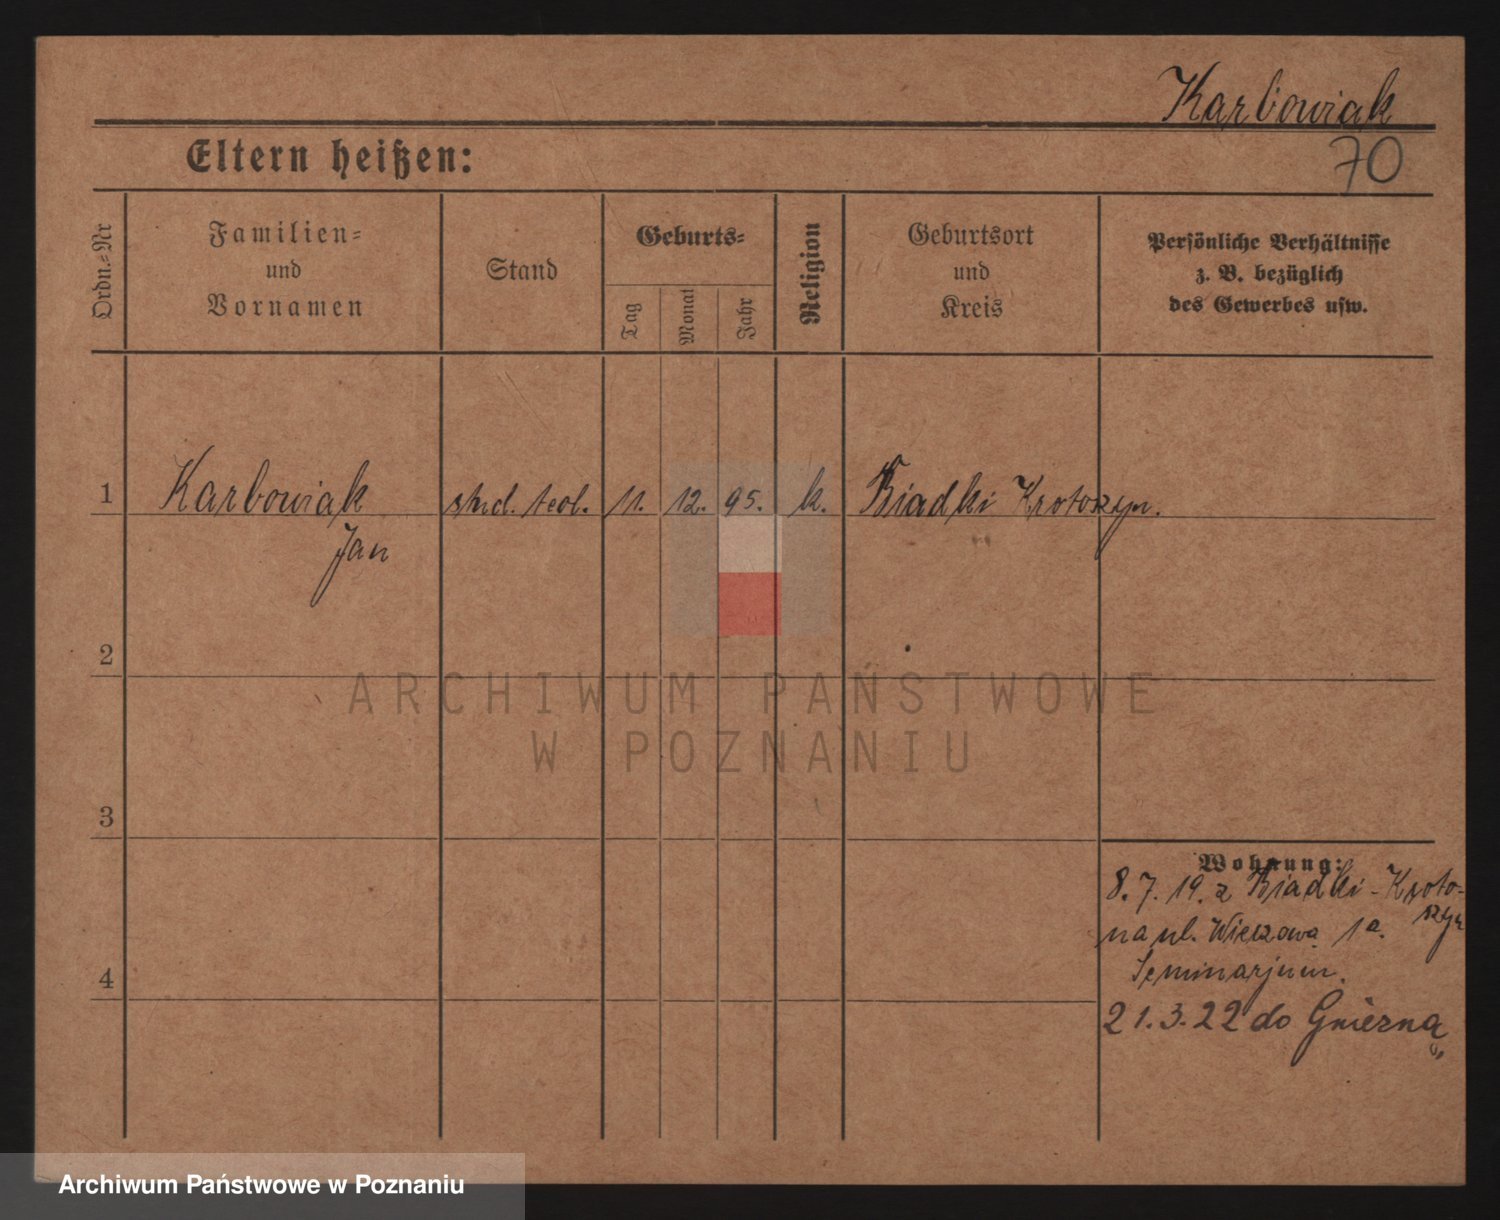 Karbowiak
Eltern heißen:
70
Ordn.=Nr
Familien=
und
Vornamen
Stand
Geburts=
Tag
Monat
Jahr
Religion
Geburtsort
und
Kreis
Persönliche Verhältnisse
z. B. bezüglich
des Gewerbes usw.
1 Karbowiak stud. teol. 11. 12. 95. k. Biadki Krotoszyn.
Jan
2
ARCHIWUM PAŃSTWOWE
W POZNANIU
3
Wohnung:
8. 7. 19. z Biadki - Kroto-
szyn
na ul. Wieżową 1a.
Seminarjum.
4
21.3.22 do Gniezna
Archiwum Państwowe w Poznaniu